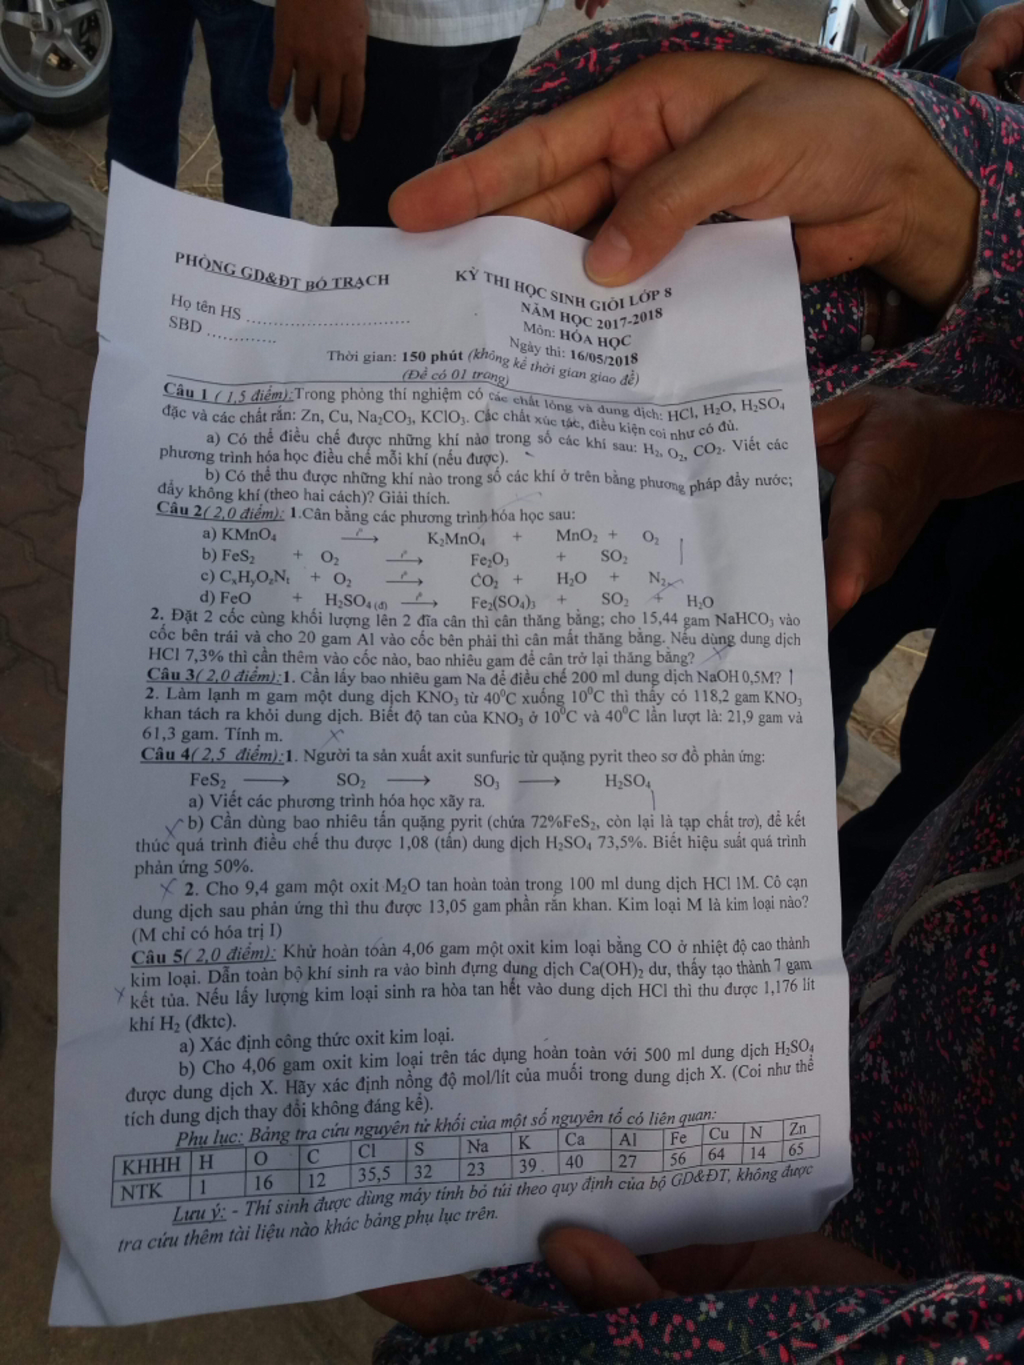 PHÒNG GD&ĐT BỐ TRẠCH
KỲ THI HỌC SINH GIỎI LỚP 8
NĂM HỌC 2017-2018
Môn: HÓA HỌC
Ngày thi: 16/05/2018
Họ tên HS ..................................
SBD .............
Thời gian: 150 phút (không kể thời gian giao đề)
(Đề có 01 trang)
Câu 1 ( 1,5 điểm): Trong phòng thí nghiệm có các chất lỏng và dung dịch: HCl, H₂O, H₂SO₄
đặc và các chất rắn: Zn, Cu, Na₂CO₃, KClO₃. Các chất xúc tác, điều kiện coi như có đủ.
a) Có thể điều chế được những khí nào trong số các khí sau: H₂, O₂, CO₂. Viết các
phương trình hóa học điều chế mỗi khí (nếu được).
b) Có thể thu được những khí nào trong số các khí ở trên bằng phương pháp đẩy nước;
đẩy không khí (theo hai cách)? Giải thích.
Câu 2( 2,0 điểm): 1.Cân bằng các phương trình hóa học sau:
a) KMnO₄ —t⁰→ K₂MnO₄ + MnO₂ + O₂
b) FeS₂ + O₂ —t⁰→ Fe₂O₃ + SO₂
c) CₓHᵧO_zNₜ + O₂ —t⁰→ CO₂ + H₂O + N₂
d) FeO + H₂SO₄ (đ) —t⁰→ Fe₂(SO₄)₃ + SO₂ + H₂O
2. Đặt 2 cốc cùng khối lượng lên 2 đĩa cân thì cân thăng bằng; cho 15,44 gam NaHCO₃ vào
cốc bên trái và cho 20 gam Al vào cốc bên phải thì cân mất thăng bằng. Nếu dùng dung dịch
HCl 7,3% thì cần thêm vào cốc nào, bao nhiêu gam để cân trở lại thăng bằng?
Câu 3( 2,0 điểm):1. Cần lấy bao nhiêu gam Na để điều chế 200 ml dung dịch NaOH 0,5M?
2. Làm lạnh m gam một dung dịch KNO₃ từ 40⁰C xuống 10⁰C thì thấy có 118,2 gam KNO₃
khan tách ra khỏi dung dịch. Biết độ tan của KNO₃ ở 10⁰C và 40⁰C lần lượt là: 21,9 gam và
61,3 gam. Tính m.
Câu 4( 2,5 điểm):1. Người ta sản xuất axit sunfuric từ quặng pyrit theo sơ đồ phản ứng:
FeS₂ → SO₂ → SO₃ → H₂SO₄
a) Viết các phương trình hóa học xãy ra.
b) Cần dùng bao nhiêu tấn quặng pyrit (chứa 72%FeS₂, còn lại là tạp chất trơ), để kết
thúc quá trình điều chế thu được 1,08 (tấn) dung dịch H₂SO₄ 73,5%. Biết hiệu suất quá trình
phản ứng 50%.
2. Cho 9,4 gam một oxit M₂O tan hoàn toàn trong 100 ml dung dịch HCl 1M. Cô cạn
dung dịch sau phản ứng thì thu được 13,05 gam phần rắn khan. Kim loại M là kim loại nào?
(M chỉ có hóa trị I)
Câu 5( 2,0 điểm): Khử hoàn toàn 4,06 gam một oxit kim loại bằng CO ở nhiệt độ cao thành
kim loại. Dẫn toàn bộ khí sinh ra vào bình đựng dung dịch Ca(OH)₂ dư, thấy tạo thành 7 gam
kết tủa. Nếu lấy lượng kim loại sinh ra hòa tan hết vào dung dịch HCl thì thu được 1,176 lít
khí H₂ (đktc).
a) Xác định công thức oxit kim loại.
b) Cho 4,06 gam oxit kim loại trên tác dụng hoàn toàn với 500 ml dung dịch H₂SO₄
được dung dịch X. Hãy xác định nồng độ mol/lít của muối trong dung dịch X. (Coi như thể
tích dung dịch thay đổi không đáng kể).
Phụ lục: Bảng tra cứu nguyên tử khối của một số nguyên tố có liên quan:
KHHH H O C Cl S Na K Ca Al Fe Cu N Zn
NTK 1 16 12 35,5 32 23 39 40 27 56 64 14 65
Lưu ý: - Thí sinh được dùng máy tính bỏ túi theo quy định của bộ GD&ĐT, không được
tra cứu thêm tài liệu nào khác bảng phụ lục trên.